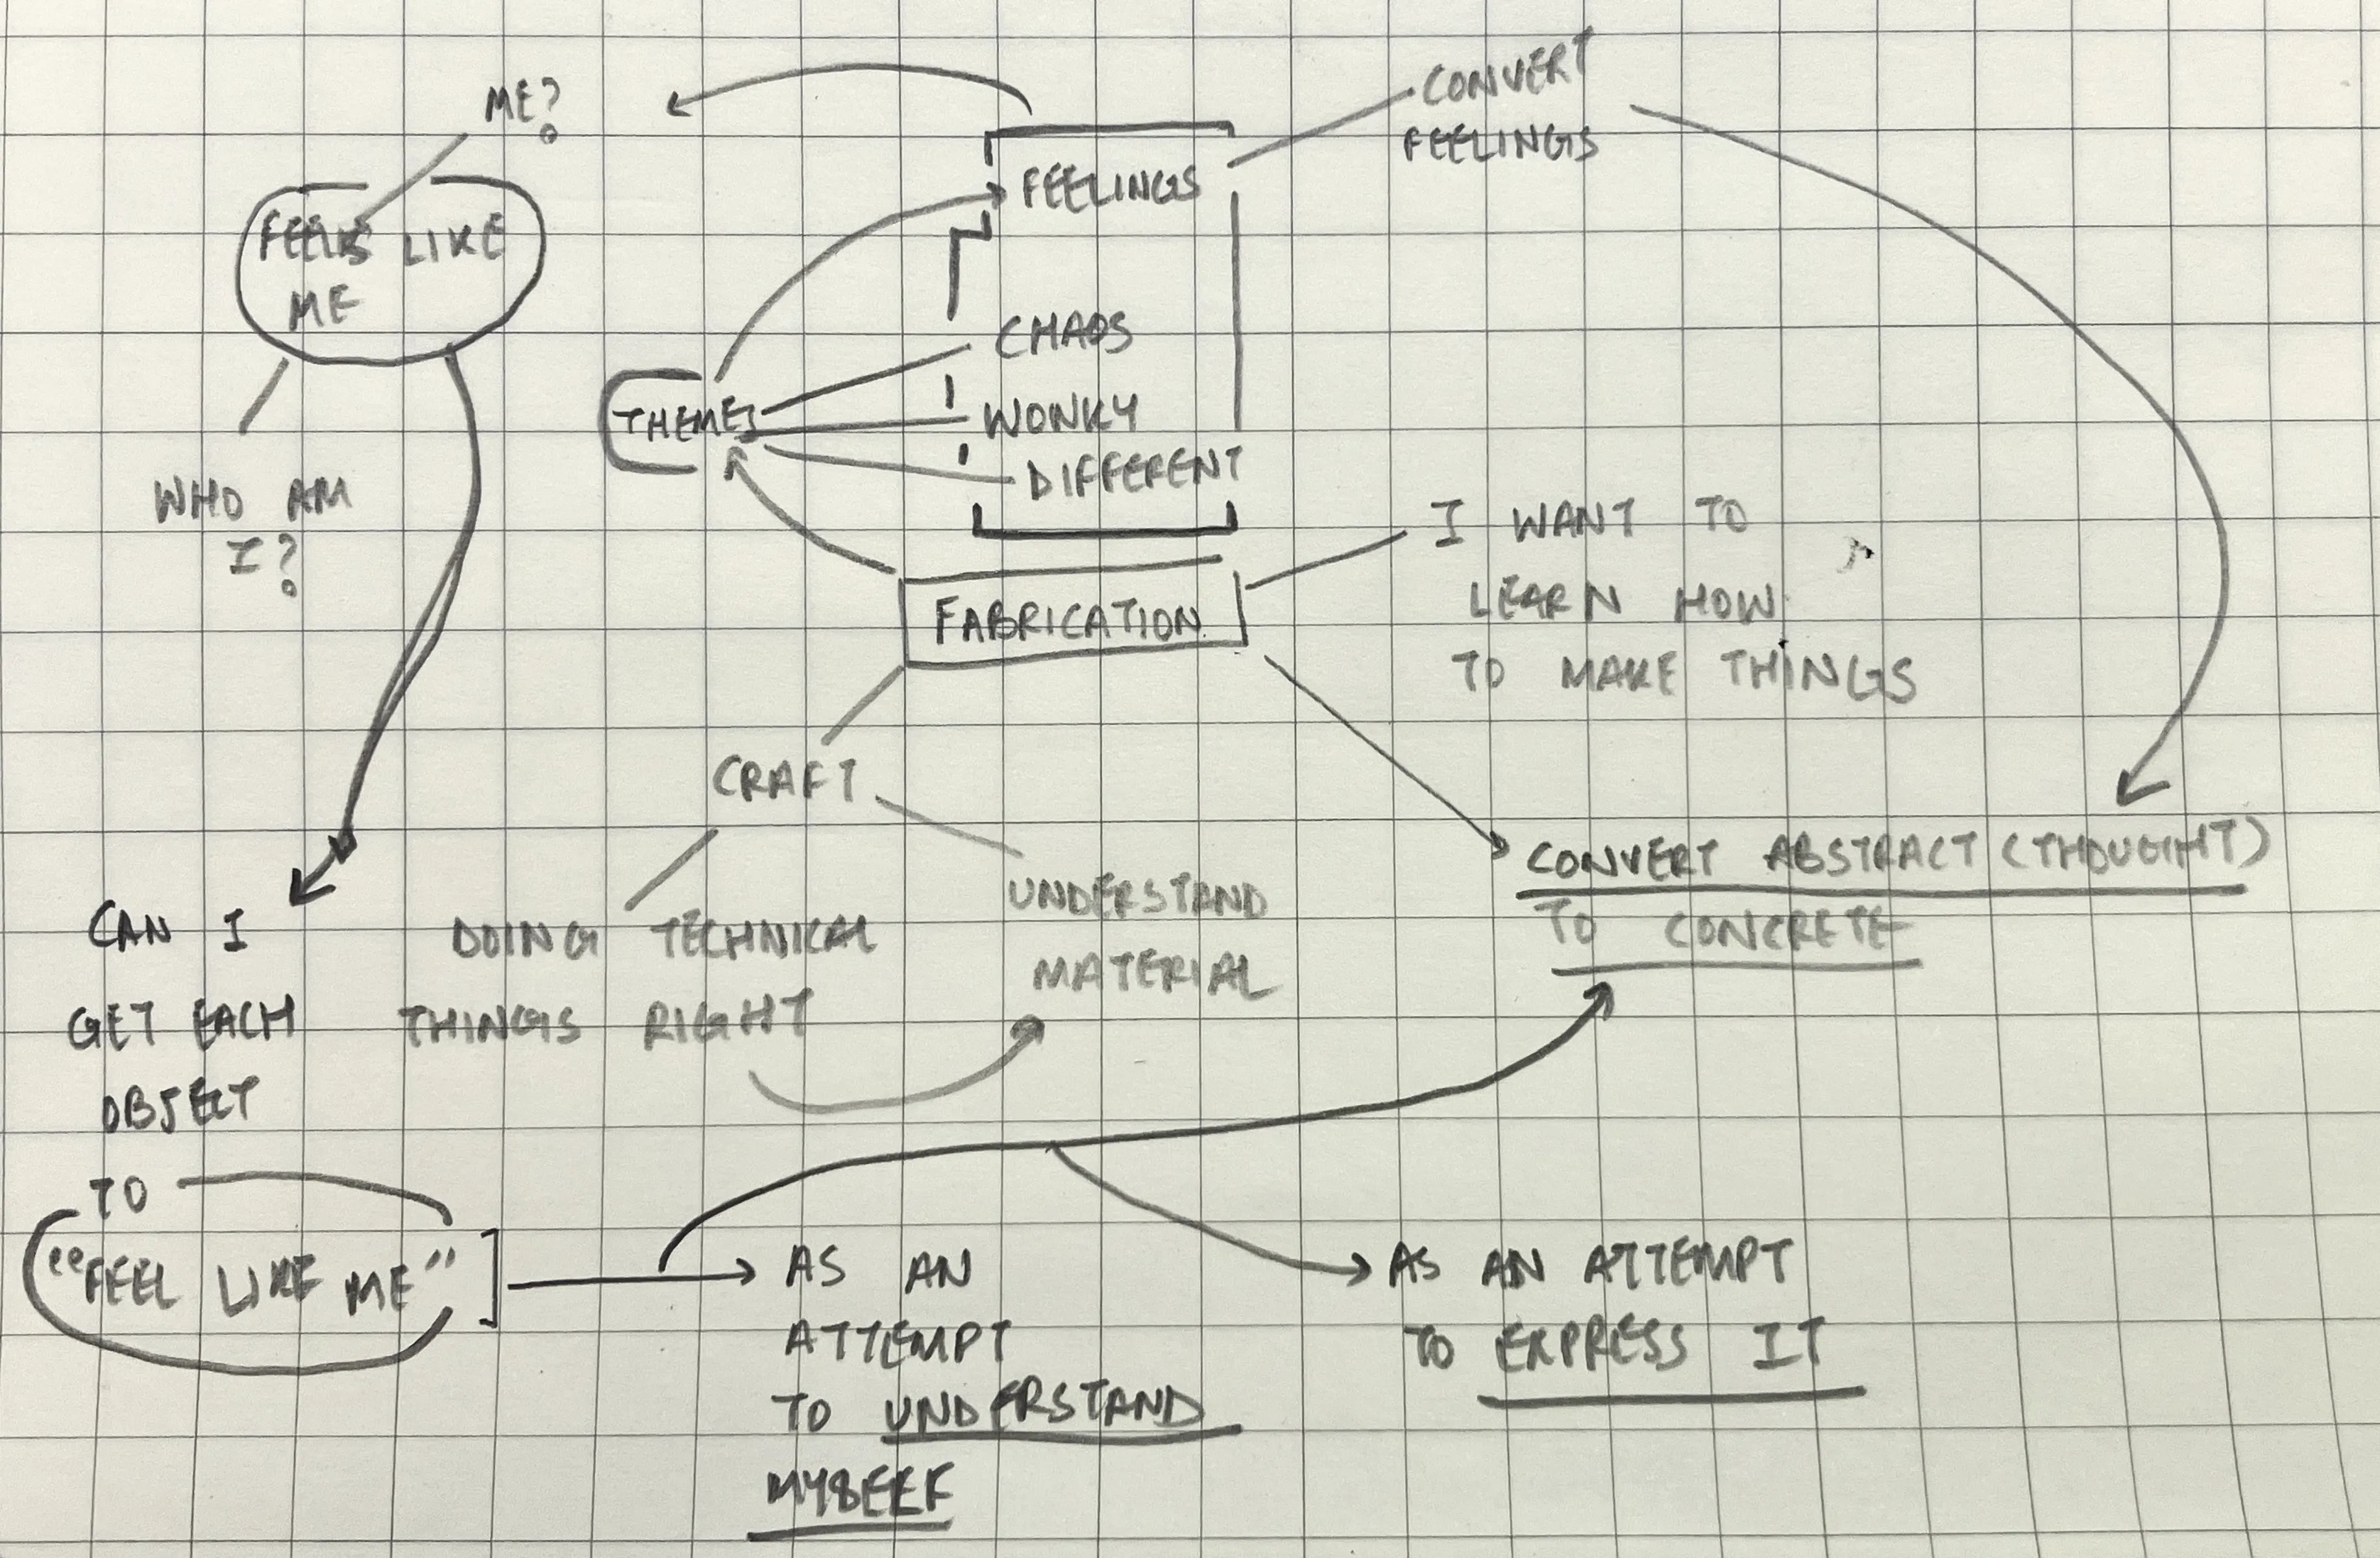 ME?
FEELS LIKE
ME
WHO AM
I?
CONVERT
FEELINGS
FEELINGS
CHAOS
THEMES
WONKY
DIFFERENT
FABRICATION
I WANT TO
LEARN HOW
TO MAKE THINGS
CRAFT
DOING TECHNICAL
THINGS RIGHT
UNDERSTAND
MATERIAL
CONVERT ABSTRACT (THOUGHT)
TO CONCRETE
CAN I
GET EACH
OBJECT
TO
"FEEL LIKE ME"
AS AN
ATTEMPT
TO UNDERSTAND
MYSELF
AS AN ATTEMPT
TO EXPRESS IT